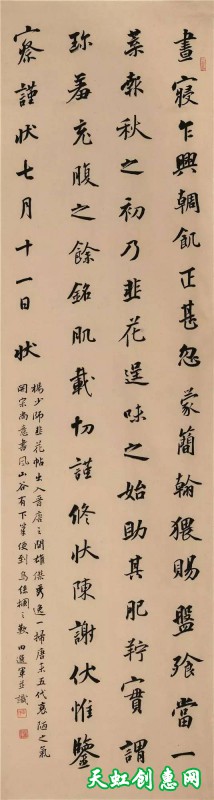 晝寢乍興輖飢正甚忽蒙簡翰猥賜盤飧當一
葉報秋之初乃韭花逞味之始助其肥羜實謂
珍羞充腹之餘銘肌載切謹修狀陳謝伏惟鑒
察謹狀七月十一日狀
楊少師韭花帖出入晉唐之間雄傑秀逸一掃唐末五代衰陋之氣
開宗尚意書風山谷有下筆便到烏絲欄之歎田逸軍並識
天虹创惠网